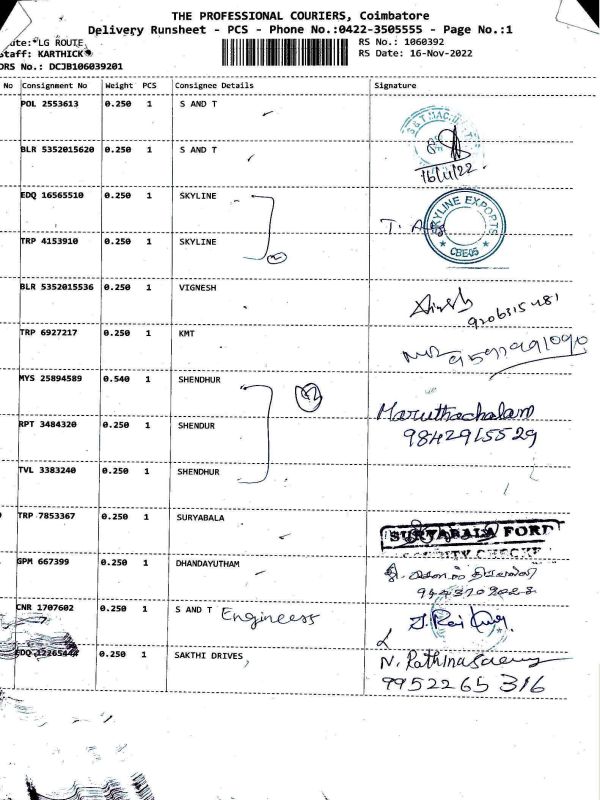 THE PROFESSIONAL COURIERS, Coimbatore
Delivery Runsheet - PCS - Phone No.:0422-3505555 - Page No.:1
LG ROUTE RS No.: 1060392
Staff: KARTHICK RS Date: 16-Nov-2022
DRS No.: DCJB106039201
No Consignment No Weight PCS Consignee Details Signature
POL 2553613 0.250 1 S AND T
BLR 5352015620 0.250 1 S AND T
16/11/22.
EDQ 16565510 0.250 1 SKYLINE
SKYLINE EXPORTS
CBE05
TRP 4153910 0.250 1 SKYLINE
BLR 5352015536 0.250 1 VIGNESH
TRP 6927217 0.250 1 KMT
MYS 25894589 0.540 1 SHENDHUR
Maruthachalam
RPT 3484320 0.250 1 SHENDUR
9842915529
TVL 3383240 0.250 1 SHENDHUR
TRP 7853367 0.250 1 SURYABALA
SURYABALA FORD
GPM 667399 0.250 1 DHANDAYUTHAM
CNR 1707602 0.250 1 S AND T Engineers
0.250 1 SAKTHI DRIVES,
9952265316